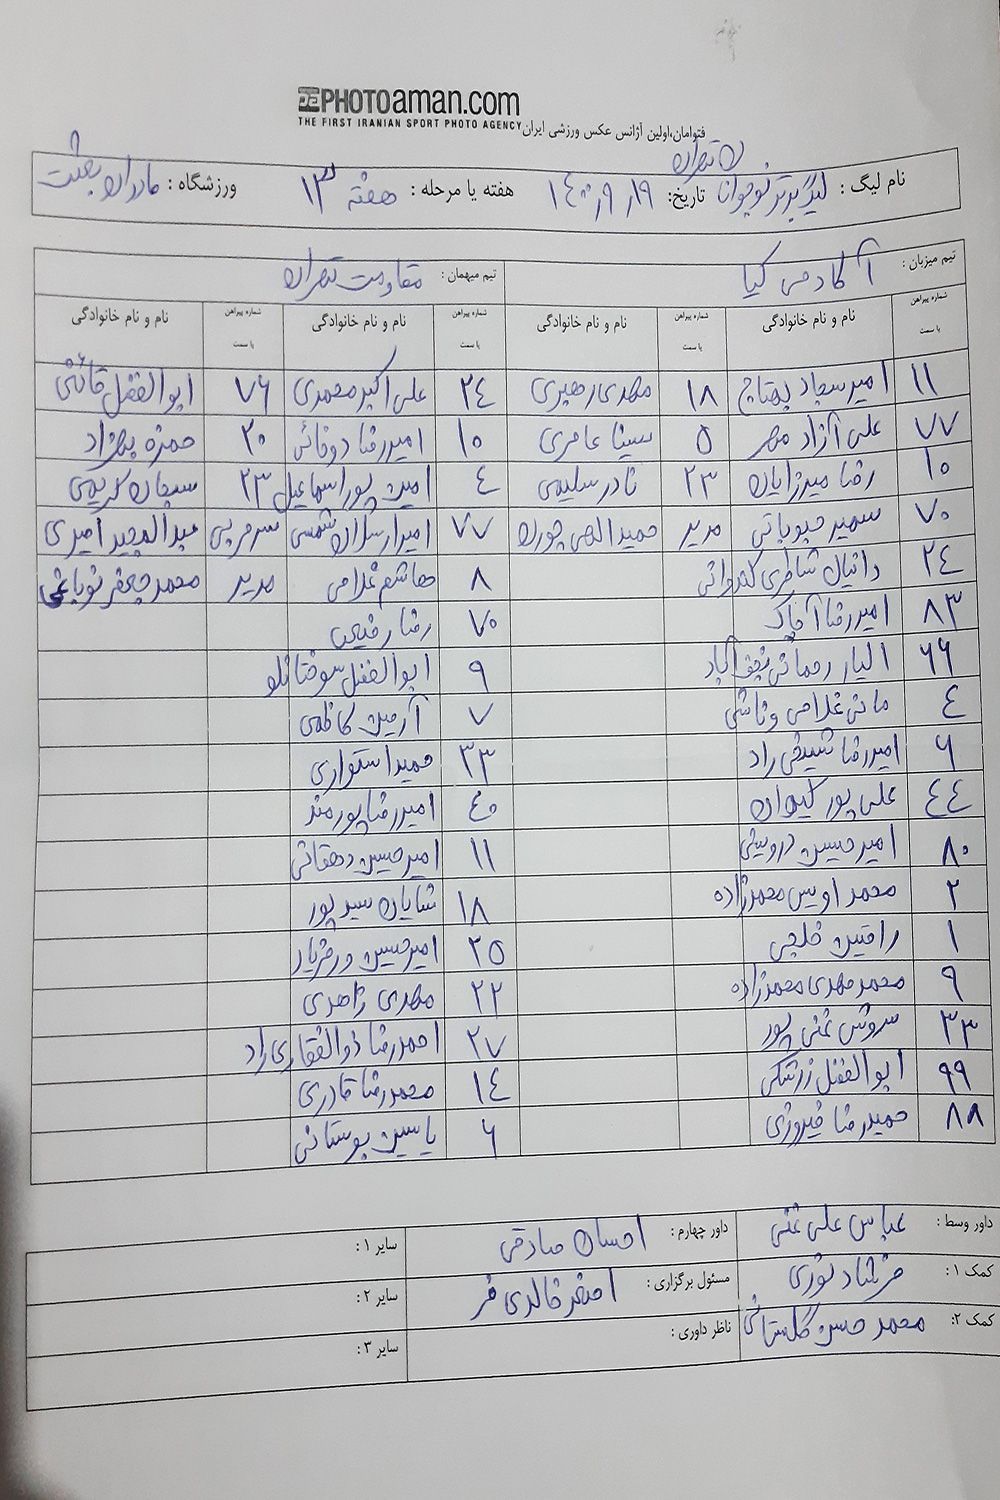 PHOTOaman.com
THE FIRST IRANIAN SPORT PHOTO AGENCY
فتوامان،اولین آژانس عکس ورزشی ایران
نام لیگ : لیگ برتر نوجوانان تهران تاریخ: ۱۴۰۰/۹/۱۹ هفته یا مرحله : هفته ۱۳ ورزشگاه : مادران بعثت
تیم میزبان : آکادمی کیا تیم میهمان : مقاومت تهران
شماره پیراهن یا سمت نام و نام خانوادگی شماره پیراهن یا سمت نام و نام خانوادگی شماره پیراهن یا سمت نام و نام خانوادگی شماره پیراهن یا سمت نام و نام خانوادگی
۱۱ امیرسجاد بهتاج ۱۸ مهدی رهبری ۲۴ علی اکبر محمدی ۷۶ ابوالفضل قائنی
۷۷ علی آزاد مهر ۵ سینا عامری ۱۰ امیررضا دوقائی ۲۰ حمزه بهزاد
۱۰ رضا میرزایان ۲۳ نادر سلیمی ۴ امین پوراسماعیل ۲۳ سبحان کریمی
۷۰ سمیر حبوباتی مدیر حمید الهی چوران ۷۷ امیرارسلان شمسی سرمربی عبدالمجید امیری
۲۴ دانیال شاطری کندوانی ۸ هاشم غلامی مدیر محمدجعفر نوباغی
۸۳ امیررضا آقاک ۷۰ رضا رفیعی
۶۶ الیار رحمانی نجف آباد ۹ ابوالفضل سوختانلو
۴ مانی غلامی وناشی ۷ آرمین کاظمی
۶ امیررضا شیدفی راد ۳۳ حمید استواری
۴۴ علی پور کیوان ۴۰ امیررضا پورمند
۸۰ امیرحسین درویشی ۱۱ امیرحسین دهقانی
۲ محمد اویس محمدزاده ۱۸ شایان سیدپور
۱ رامتین خلجی ۲۵ امیرحسین ورمزیار
۹ محمدمهدی محمدزاده ۲۲ مهدی زاهدی
۳۳ سروش غنی پور ۲۷ احمدرضا ذوالفقاری راد
۹۹ ابوالفضل زرشکی ۱۴ محمدرضا قادری
۸۸ حمیدرضا فیروزی ۶ یاسین بوستانی
داور وسط : عباس علی غنی داور چهارم : احسان صادقی سایر ۱ :
کمک ۱ : فرشاد نوری مسئول برگزاری : اصغر خالدی فر سایر ۲ :
کمک ۲: محمد حسن گلستانی ناظر داوری : سایر ۳ :